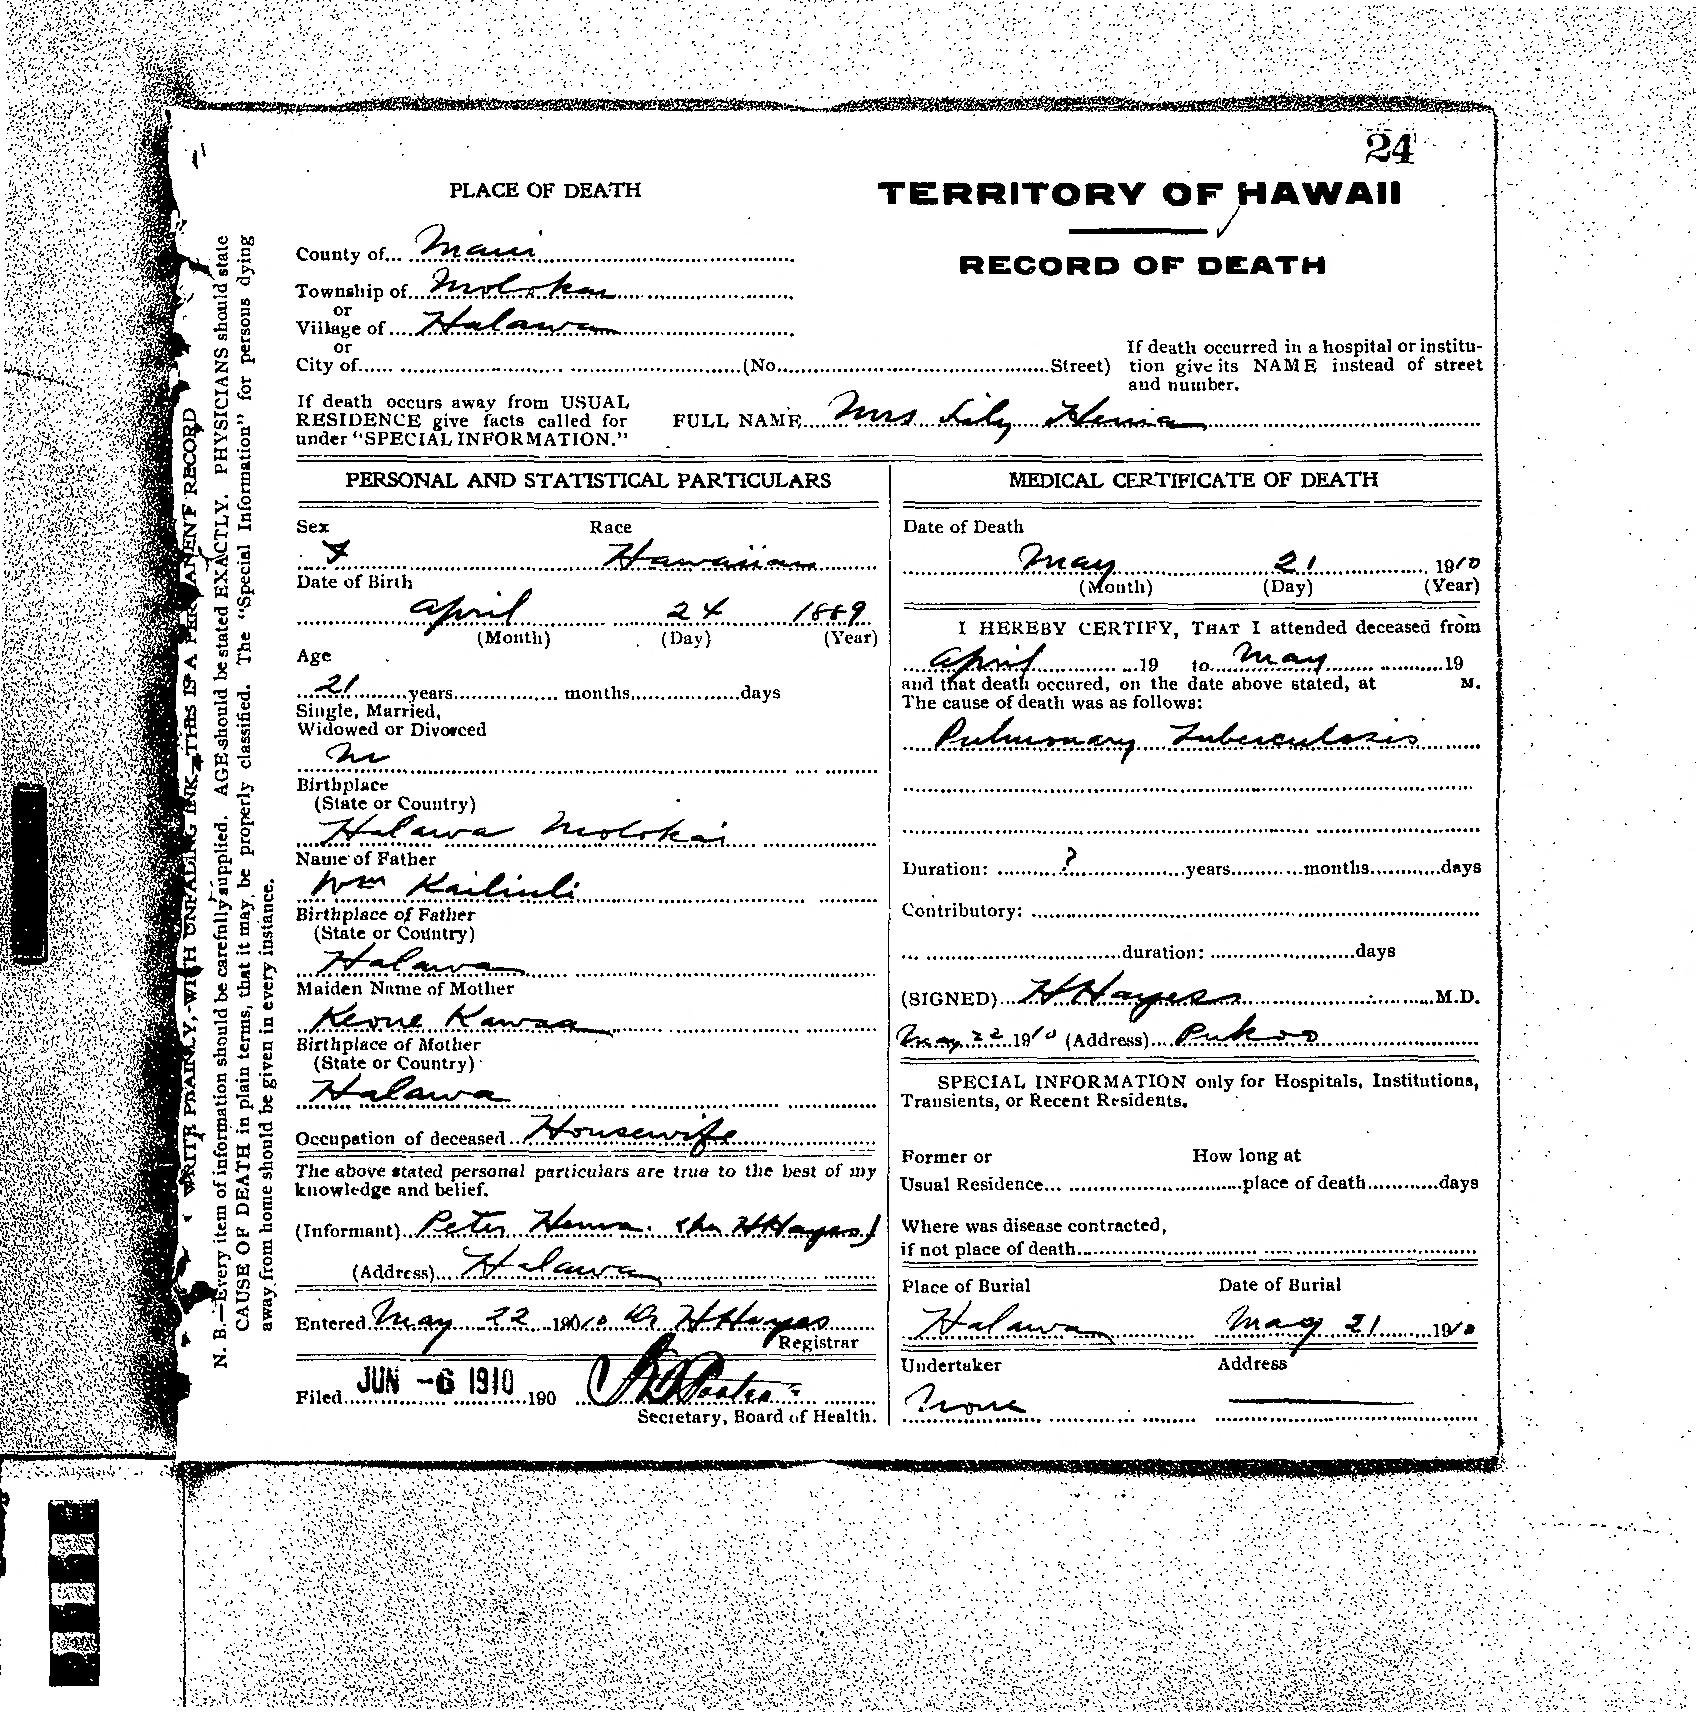 24
PLACE OF DEATH
TERRITORY OF HAWAII
RECORD OF DEATH
County of... Maui
Township of Molokai
or
Village of Halawa
or
City of (No. Street)
If death occurred in a hospital or institu-
tion give its NAME instead of street
and number.
If death occurs away from USUAL
RESIDENCE give facts called for
under "SPECIAL INFORMATION."
FULL NAME Mrs Lily
PERSONAL AND STATISTICAL PARTICULARS
Sex Race
f Hawaiian
Date of Birth
April 24 1889
(Month) (Day) (Year)
Age
21 years months days
Single, Married,
Widowed or Divorced
m
Birthplace
(State or Country)
Halawa Molokai
Name of Father
Wm
Birthplace of Father
(State or Country)
Halawa
Maiden Name of Mother
Keone Kawaa
Birthplace of Mother
(State or Country)
Halawa
Occupation of deceased Housewife
The above stated personal particulars are true to the best of my
knowledge and belief.
(Informant) Peter (per H Hayes)
(Address) Halawa
Entered May 22 19010 Dr H Hayes
Registrar
Filed JUN -6 1910 190
Secretary, Board of Health.
MEDICAL CERTIFICATE OF DEATH
Date of Death
May 21 1910
(Month) (Day) (Year)
I HEREBY CERTIFY, THAT I attended deceased from
April 19 to May 19
and that death occured, on the date above stated, at M.
The cause of death was as follows:
Pulmonary Tuberculosis
Duration: ? years months days
Contributory:
duration: days
(SIGNED) H Hayes M.D.
May 22 1910 (Address) Pukoo
SPECIAL INFORMATION only for Hospitals, Institutions,
Transients, or Recent Residents.
Former or How long at
Usual Residence place of death days
Where was disease contracted,
if not place of death
Place of Burial Date of Burial
Halawa May 21 1910
Undertaker Address
None
WRITE PLAINLY, WITH UNFADING INK—THIS IS A PERMANENT RECORD
N. B.—Every item of information should be carefully supplied. AGE should be stated EXACTLY. PHYSICIANS should state
CAUSE OF DEATH in plain terms, that it may be properly classified. The "Special Information" for persons dying
away from home should be given in every instance.